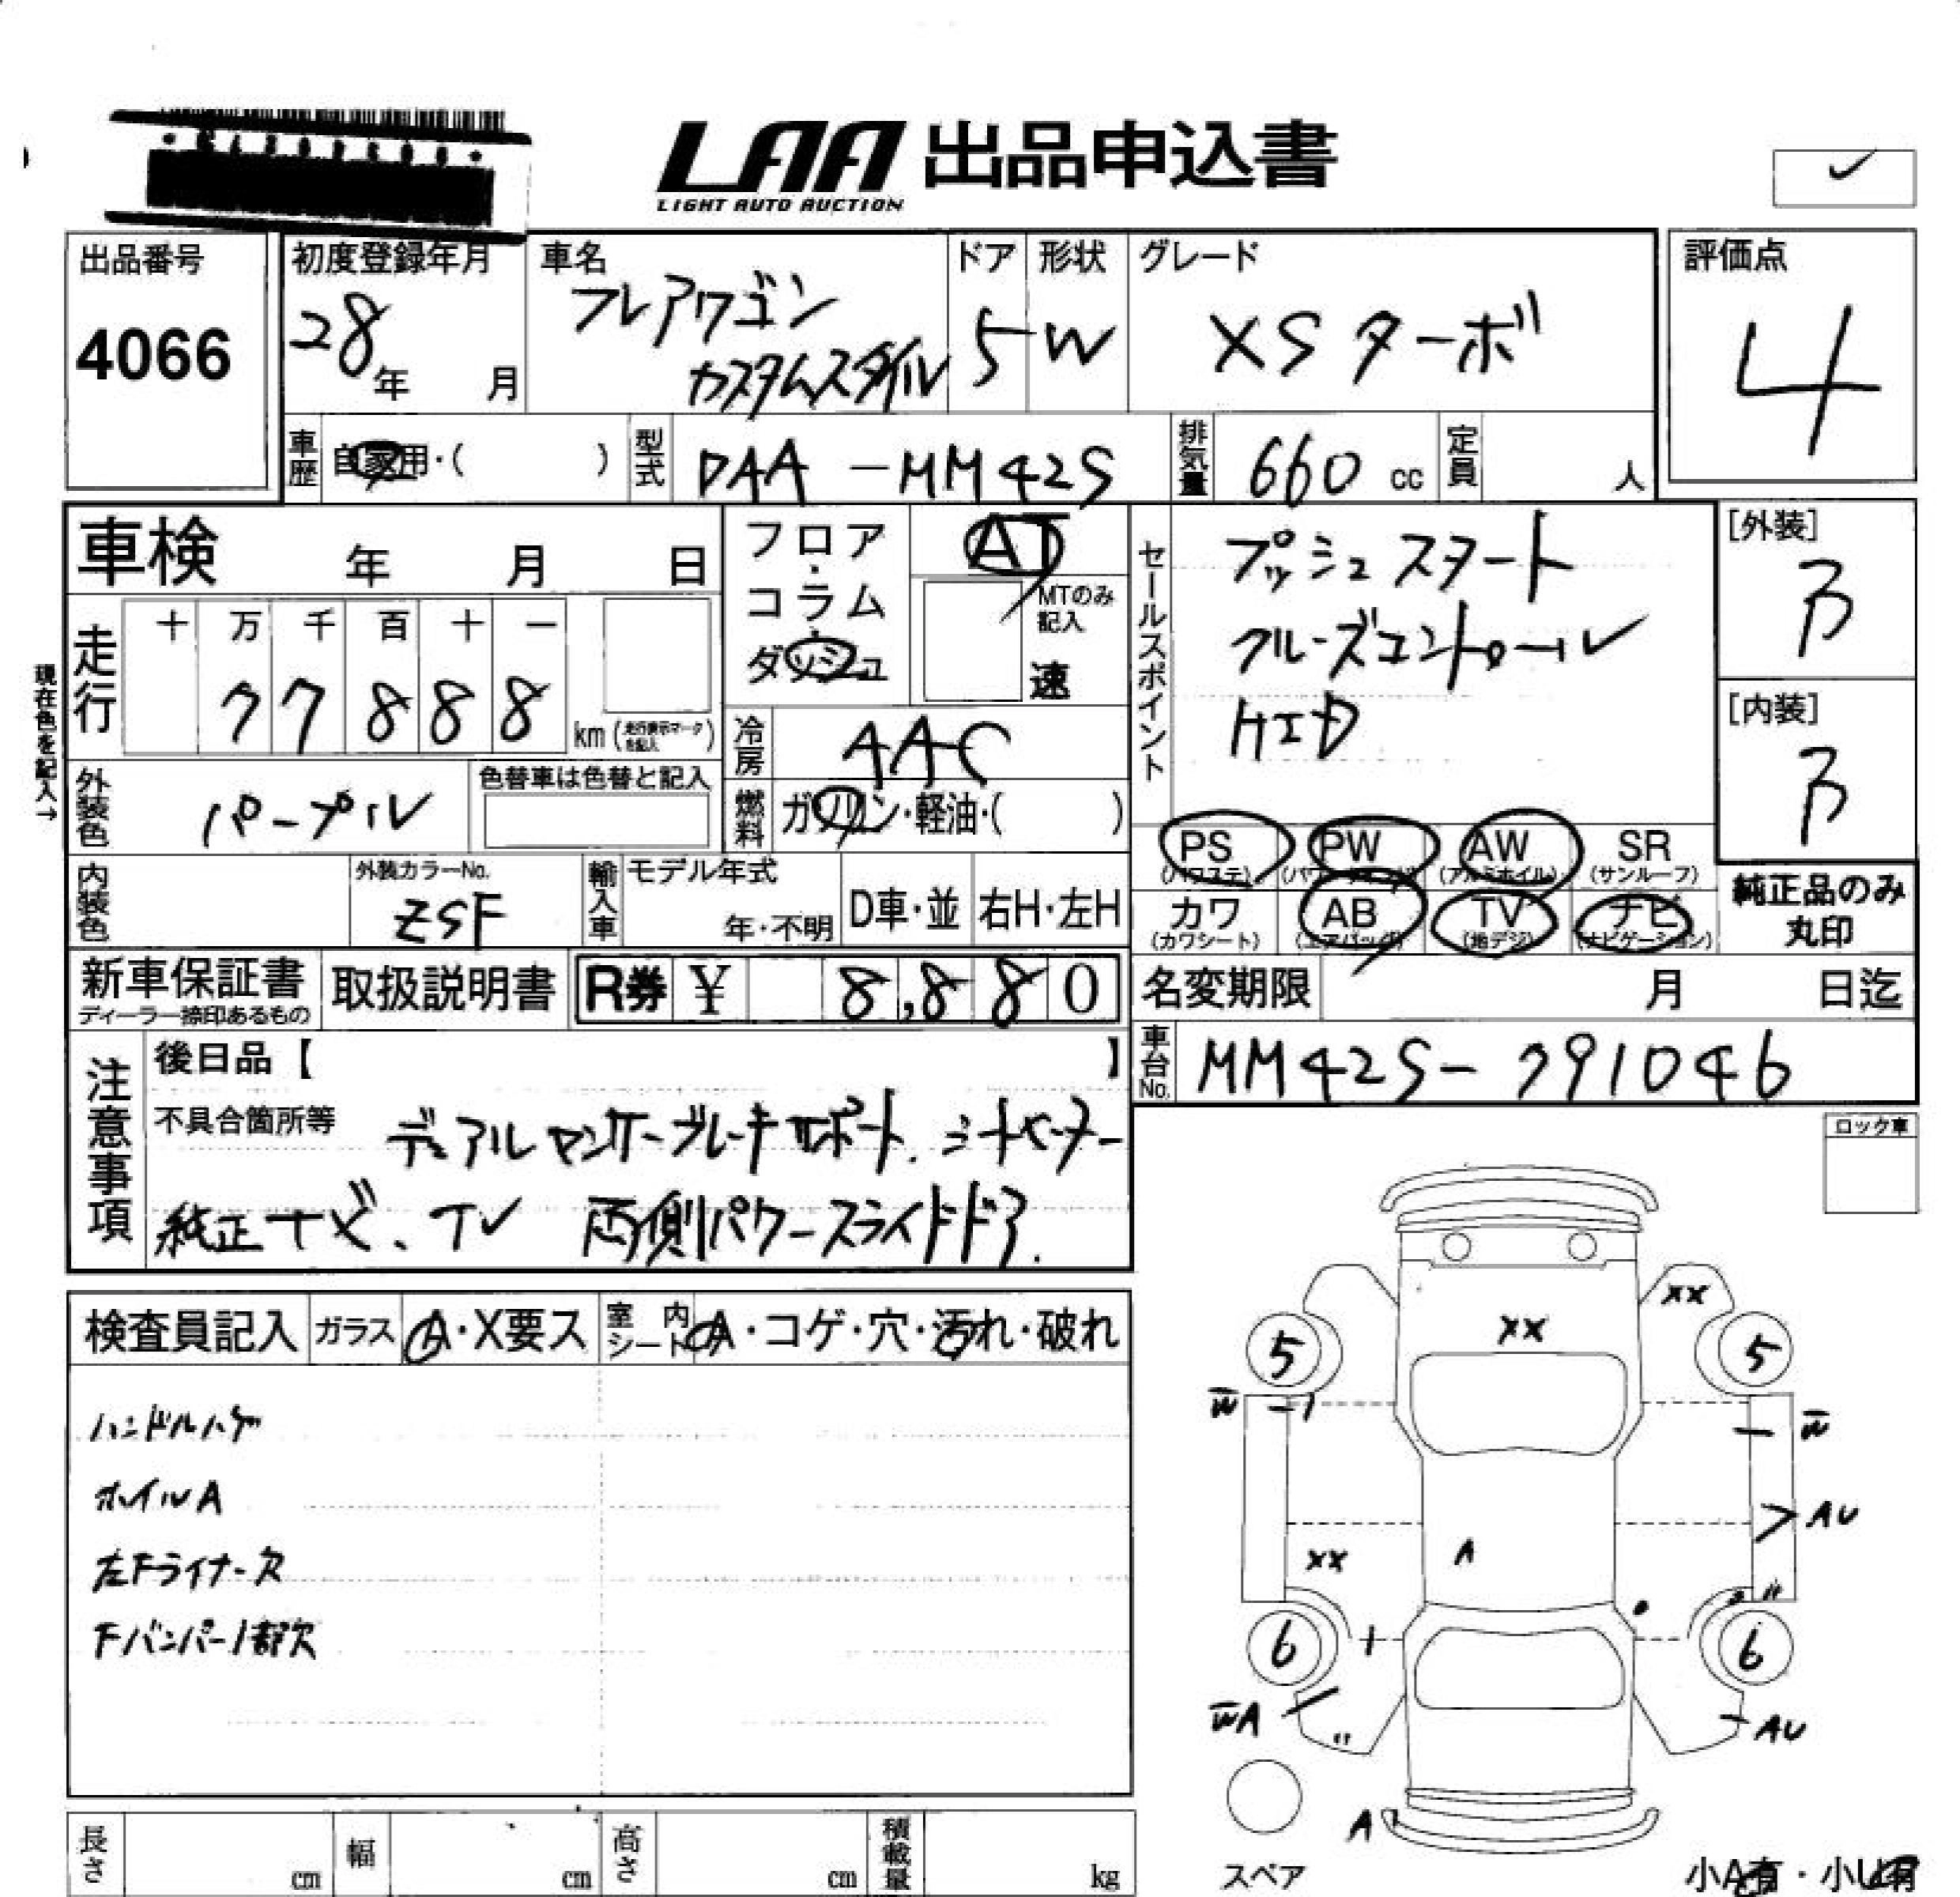 LAA 出品申込書
LIGHT AUTO AUCTION
出品番号
4066
初度登録年月
28年 月
車名
フレアワゴン
カスタムスタイル
ドア
5
形状
W
グレード
XSターボ
評価点
4
車歴 自家用・( )
型式 DAA-MM42S
排気量 660 cc
定員 人
車検 年 月 日
フロア・コラム・ダッシュ
AT
MTのみ記入
速
セールスポイント
プッシュスタート
クルーズコントロール
HID
[外装]
B
[内装]
B
現在色を記入→
走行
十 万 千 百 十 一
7 7 8 8 8 km (走行表示マークを記入)
冷房 AAC
外装色 パープル
色替車は色替と記入
燃料 ガソリン・軽油・( )
PS (パワステ) PW AW (アルミホイル) SR (サンルーフ)
カワ (カワシート) AB (エアバッグ) TV (地デジ) ナビ (ナビゲーション)
純正品のみ
丸印
内装色
外装カラーNo.
ZSF
輸入車
モデル年式
年・不明
D車・並
右H・左H
新車保証書
ディーラー捺印あるもの
取扱説明書
R券 ¥ 8,880
名変期限 月 日迄
車台No. MM42S-791046
注意事項
後日品【 】
不具合箇所等 デュアルセンサーブレーキサポート.シートヒーター
純正ナビ、TV 両側パワースライドドア.
ロック車
検査員記入
ガラス A・X要ス
室内シート A・コゲ・穴・汚れ・破れ
ハンドルハゲ
ホイルA
左Fライナー欠
Fバンパー1部欠
XX
XX
5
5
W
W
AU
XX
A
〃
6
6
WA
〃
AU
A
スペア
小A有・小U有
長さ cm
幅 cm
高さ cm
積載量 kg